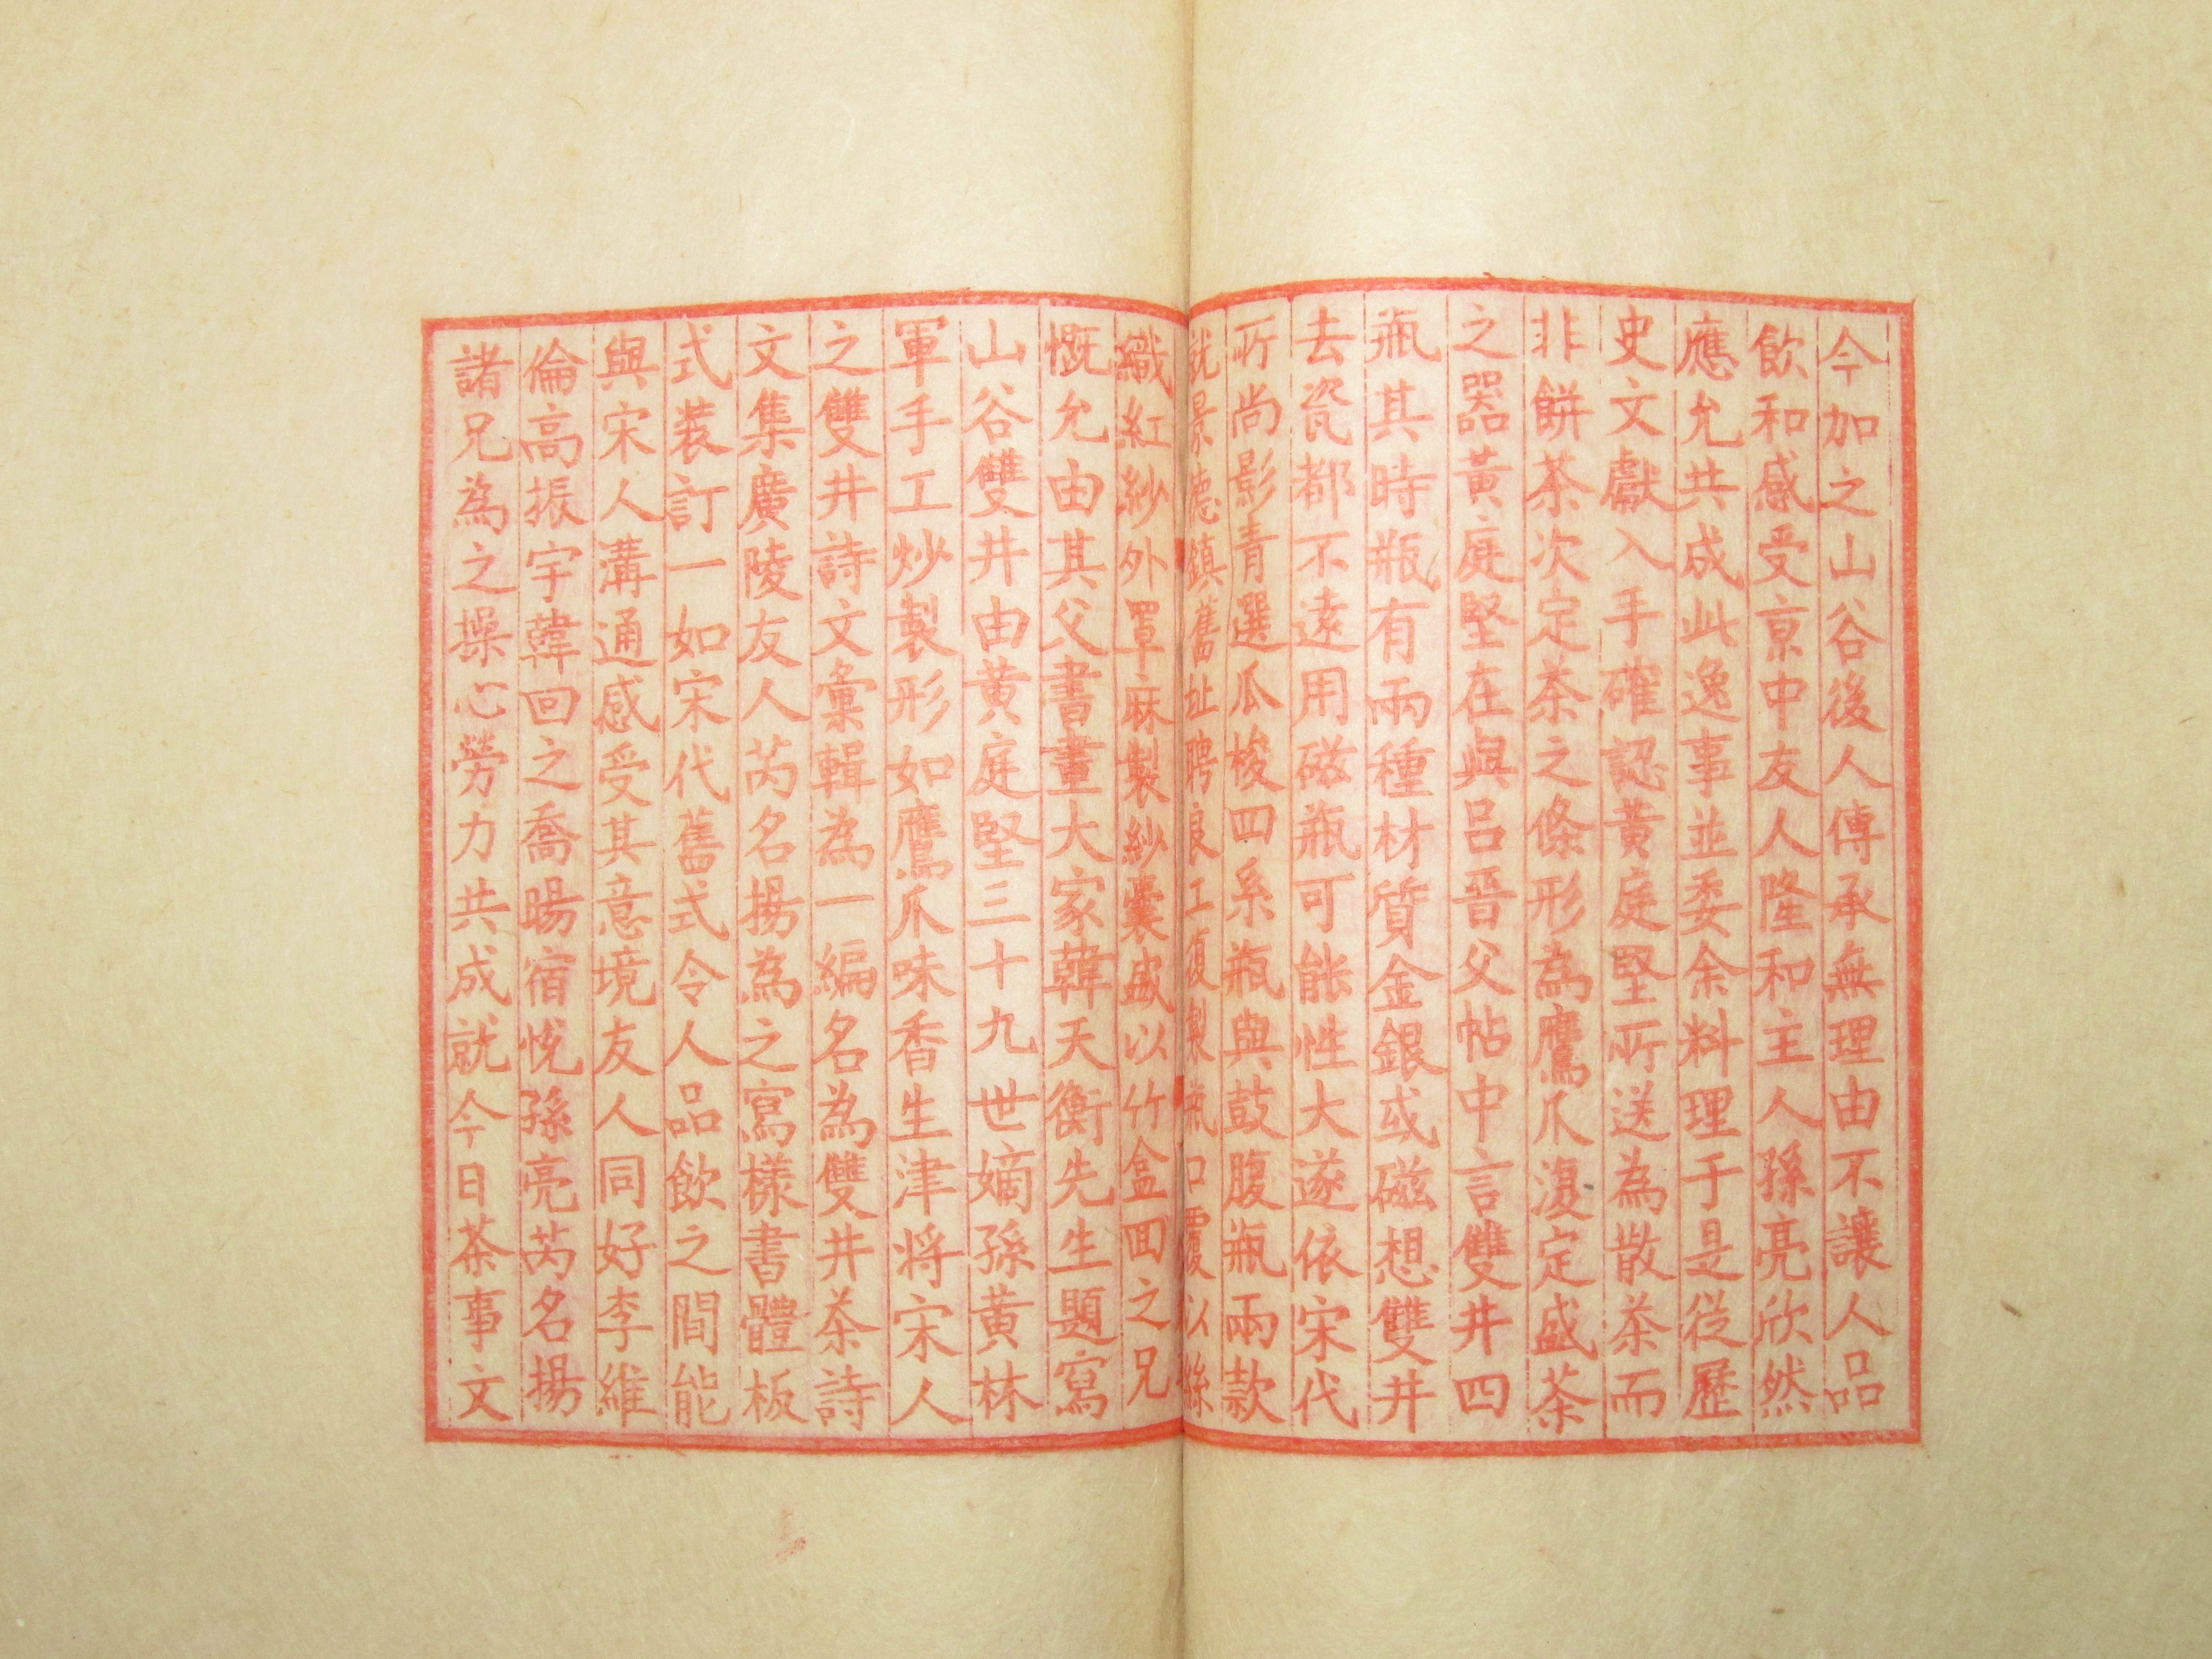 今加之山谷後人傳承無理由不讓人品
飲和感受京中友人隆和主人孫亮欣然
應允共成此逸事並委余料理于是從歷
史文獻入手確認黃庭堅所送為散茶而
非餅茶次定茶之條形為鷹爪復定盛茶
之器黃庭堅在與呂晉父帖中言雙井四
瓶其時瓶有兩種材質金銀或磁想雙井
去瓷都不遠用磁瓶可能性大遂依宋代
所尚影青選瓜梭四系瓶與鼓腹瓶兩款
就景德鎮舊址聘良工復製瓶口覆以絲
織紅紗外罩麻製紗囊盛以竹盒回之兄
慨允由其父書畫大家韓天衡先生題寫
山谷雙井由黃庭堅三十九世嫡孫黃林
軍手工炒製形如鷹爪味香生津將宋人
之雙井詩文彙輯為一編名為雙井茶詩
文集廣陵友人芮名揚為之寫樣書體板
式裝訂一如宋代舊式令人品飲之間能
與宋人溝通感受其意境友人同好李維
倫高振宇韓回之喬暘宿悅孫亮芮名揚
諸兄為之操心勞力共成就今日茶事文